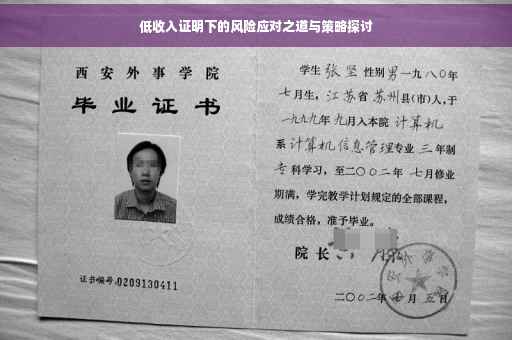 低收入证明下的风险应对之道与策略探讨
西安外事学院
毕业证书
证书编号:0209130411
学生 张坚 性别 男 一九八〇年
七月生，江苏省 苏州县(市)人,于
一九九九年 九月入本院 计算机
系 计算机信息管理专业 三 年制
专科学习，至二〇〇二年 七月修业
期满，学完教学计划规定的全部课程，
成绩合格，准予毕业。
院长
二〇〇二年 七月 五日